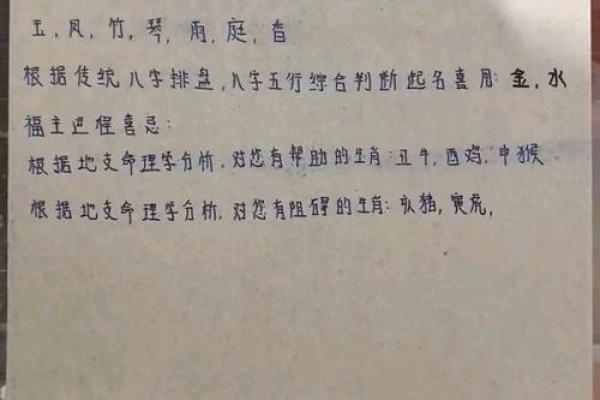 玉,凤,竹,琴,雨,庭,香
根据传统八字排盘,八字五行综合判断起名喜用:金,水
福主进程喜忌:
根据地支命理学分析,对您有帮助的生肖:丑牛,酉鸡,申猴
根据地支命理学分析,对您有阻碍的生肖:亥猪,寅虎,